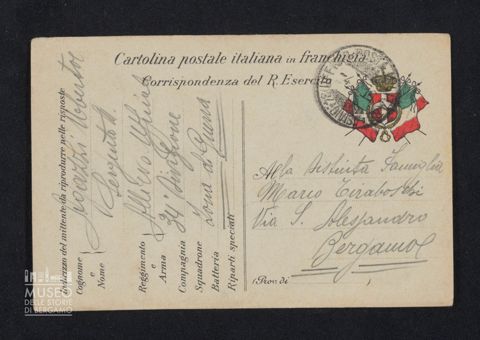 Cartolina postale italiana in franchigia
Corrispondenza del R. Esercito
Indirizzo del mittente da riprodurre nelle risposte
Cognome
e
Nome
Reggimento
Arma
Compagnia
Squadrone
Batteria
Riparti speciali
Umberto
Sergente
34ª Divisione
Zona di Guerra
Alla Distinta Famiglia
Mario Tiraboschi
Via S. Alessandro
Bergamo
(Prov. di
MUSEO
DELLE STORIE
DI BERGAMO